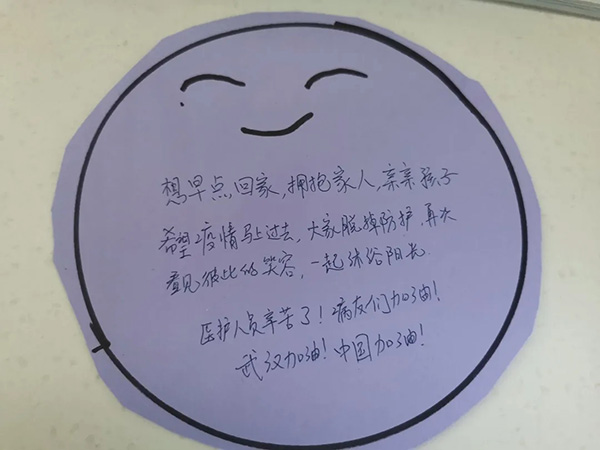 想早点回家,拥抱家人,亲亲孩子
希望疫情马上过去,大家脱掉防护,再次
看见彼此的笑容,一起沐浴阳光
医护人员辛苦了!病友们加油!
武汉加油!中国加油!